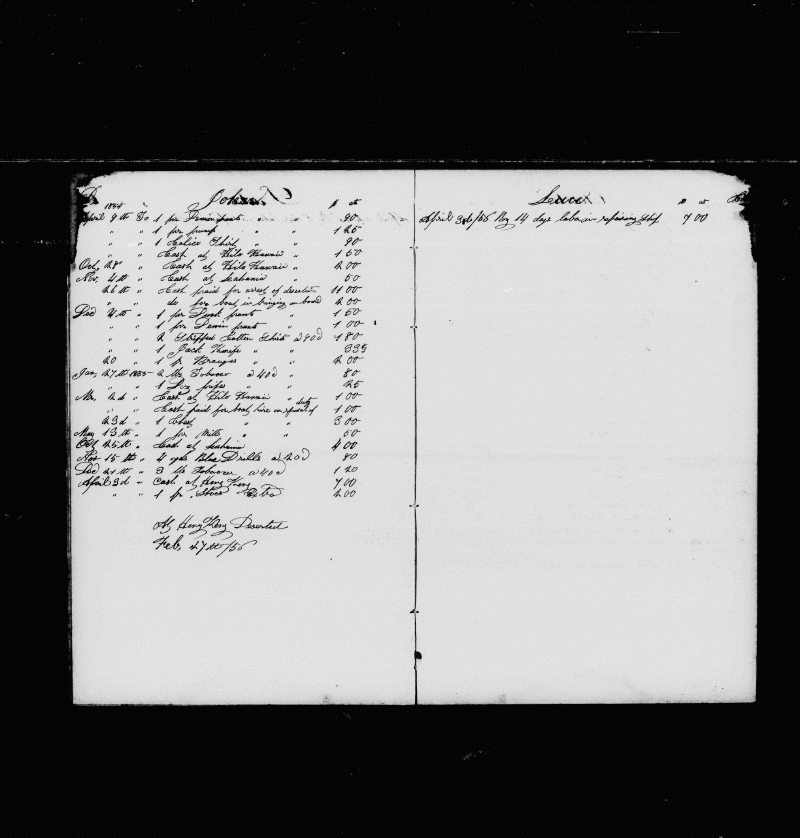 Dr John
1854 $ ct
April 9th To 1 pr Denim pants " " 90
" " 1 pr pumps " " 1 25
" " 1 Calico Shirt " " 90
" " Cash at Hilo Hawaii " 1 50
Oct, 28 " Cash at Hilo Hawaii " 2 00
Nov, 4th " Cash at Lahaina " 50
26th " Cash paid for arrest of desertion 11 00
" " do for boat in bringing on board 2 00
Dec 4th " 1 pr Duck pants " 1 50
" " 1 pr Denim pants " 1 00
" " 2 Stripped Cotten Shirts a 90c 1 80
" " 1 Jack Knife " " 33
20 " 1 pr Brougns " 2 00
Jan, 27th 1855 2 lbs Tobacco a 40c " 80
" " 1 Doz pipes " " 25
Mr, 2d " Cash at Hilo Hawaii " 1 00
" " Cash paid for boat hire on refusal of duty 1 00
23d " 1 " " 3 00
13th " 1 pr Mitts " " 50
Oct, 25th " Cash at Lahaina 4 00
Nov 15th " 4 yds Blue Drills at 20c 80
Dec 21th " 3 lbs Tobacco a 40c 1 20
April 3d " Cash at Hong Kong 7 00
" " 1 pr Shoes Extra 2 00
At Hong Kong Deserted
Feb, 27th/56
$ ct
April 3d/56 By 14 days labor in repairing ship 7 00